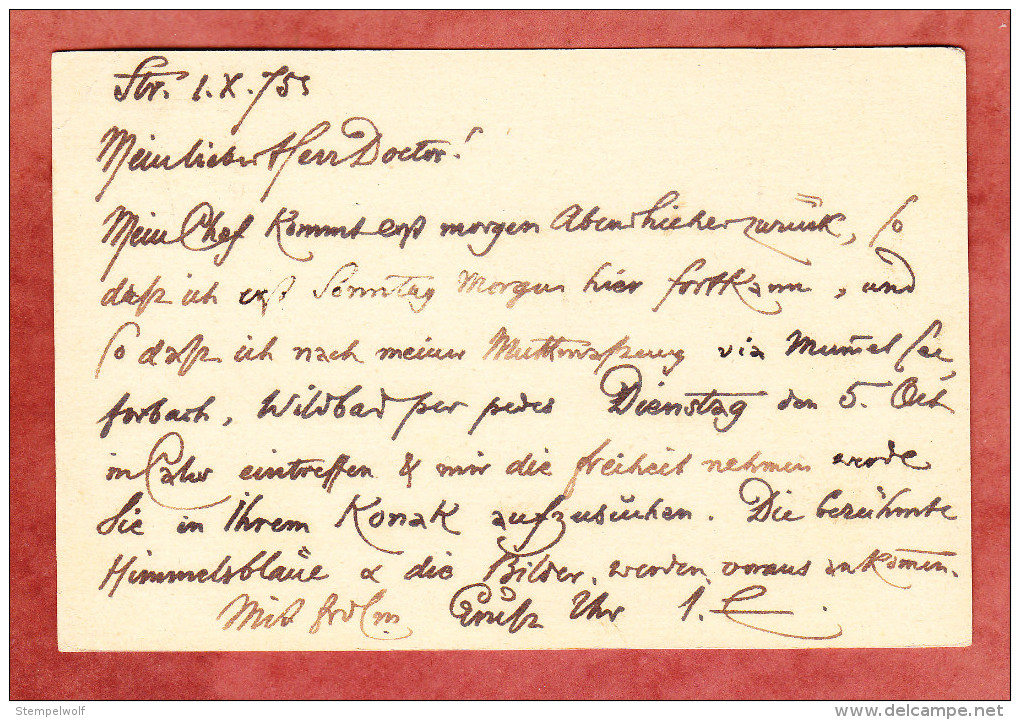 Str. 1.X.75
Mein lieber Herr Doctor!
Mein Chef kommt erst morgen Abend hieher zurück, so
daß ich erst Sonntag Morgen hier fortkann, und
so daß ich nach meiner via Mummelsee,
forbach, Wildbad per pedes Dienstag den 5. Oct
in Calw eintreffen & mir die freiheit nehmen werde
Sie in Ihrem Konak aufzusuchen. Die berühmte
Himmelsbläue & die Bilder, werden voraus ankom̅en.
Mit frdlm Gruß Ihr
Stempelwolf
www.delcampe.net